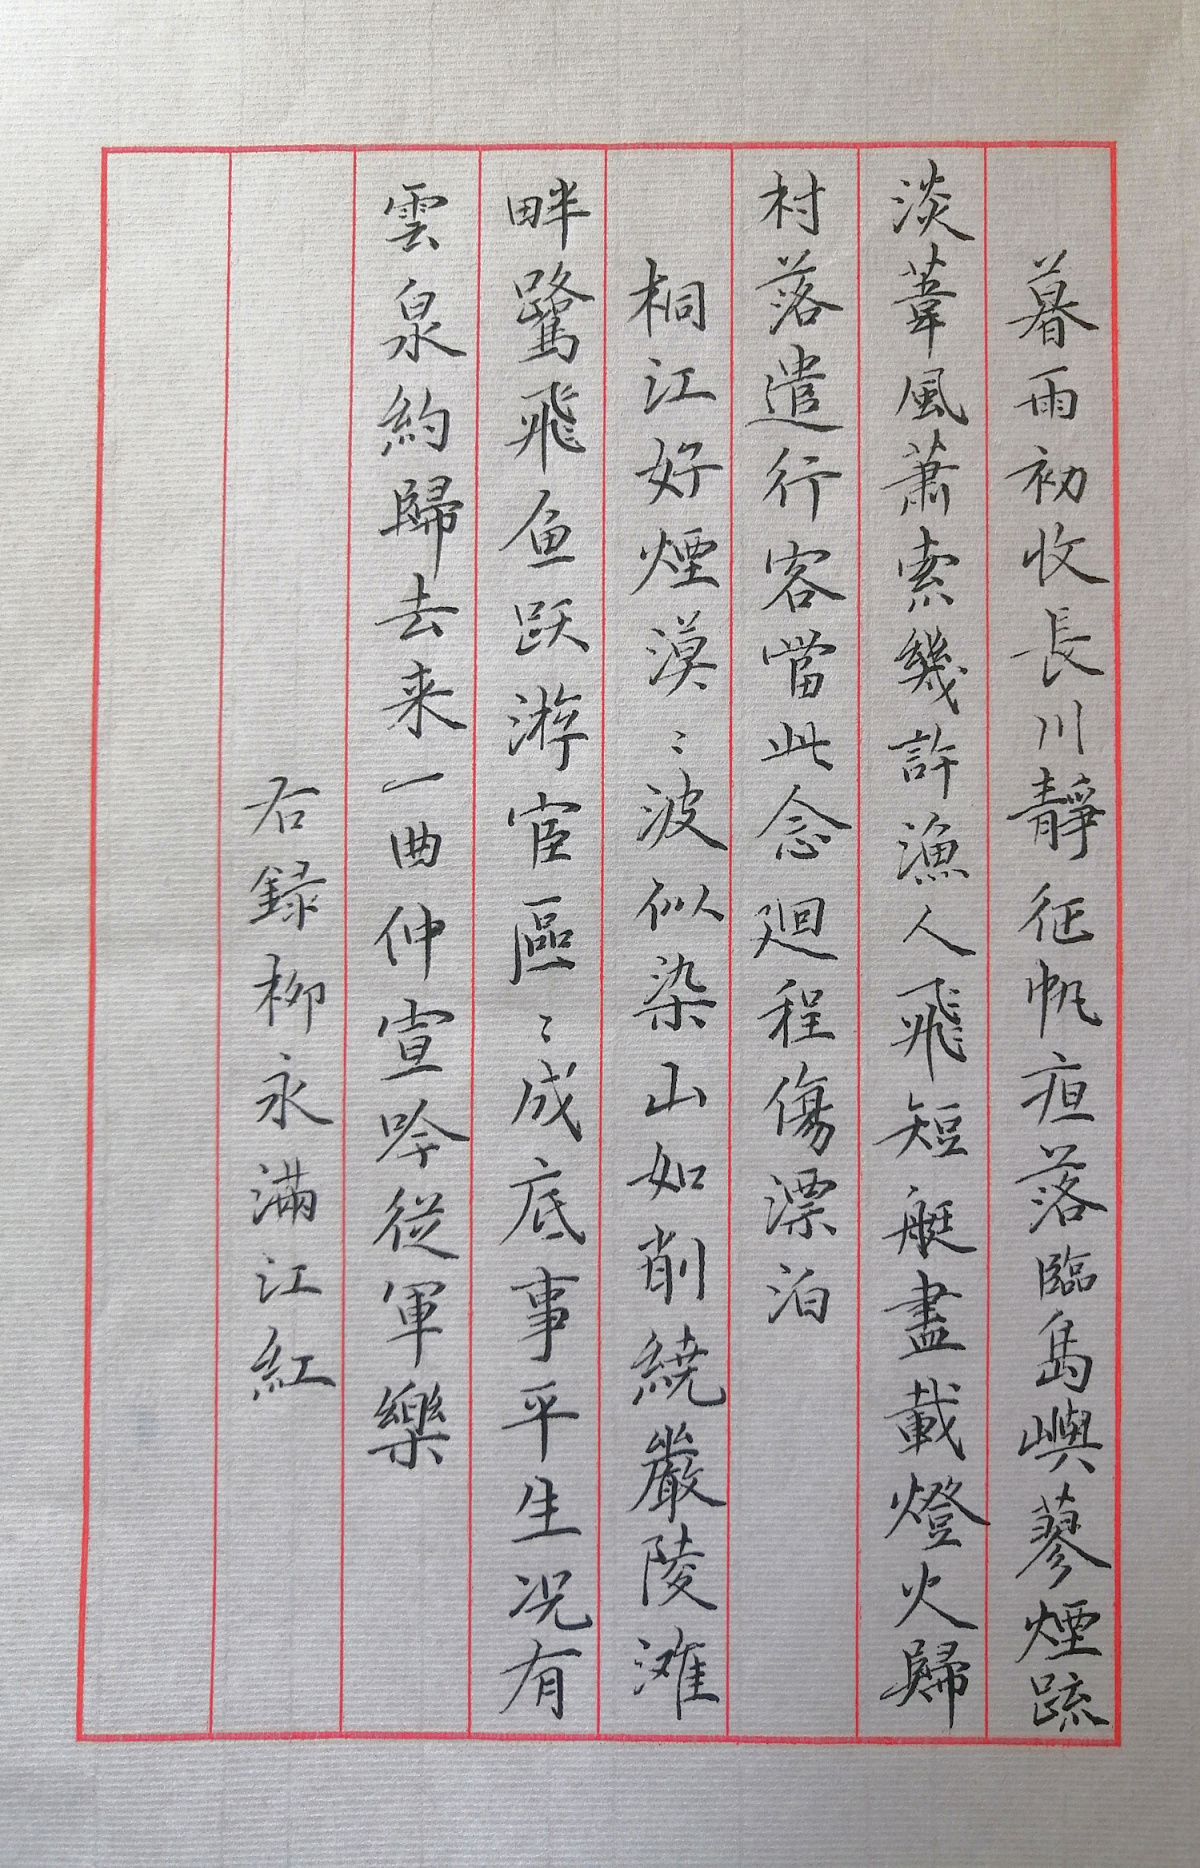 暮雨初收長川靜征帆夜落臨島嶼蓼煙疏
淡葦風蕭索幾許漁人飛短艇盡載燈火歸
村落遣行客當此念廻程傷漂泊
桐江好煙漠〻波似染山如削繞嚴陵灘
畔鷺飛魚跃游宦區〻成底事平生況有
雲泉約歸去来一曲仲宣吟從軍樂
右録柳永滿江紅